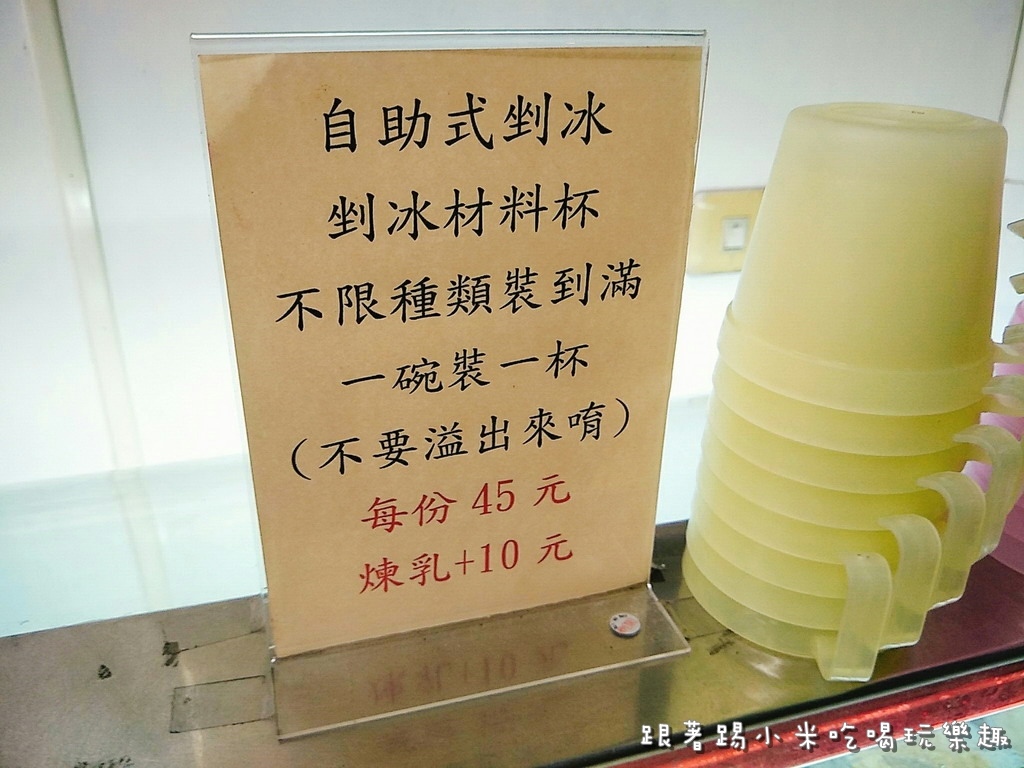 自助式剉冰
剉冰材料杯
不限種類裝到滿
一碗裝一杯
（不要溢出來唷）
每份 45 元
煉乳+10 元
跟著踢小米吃喝玩樂趣